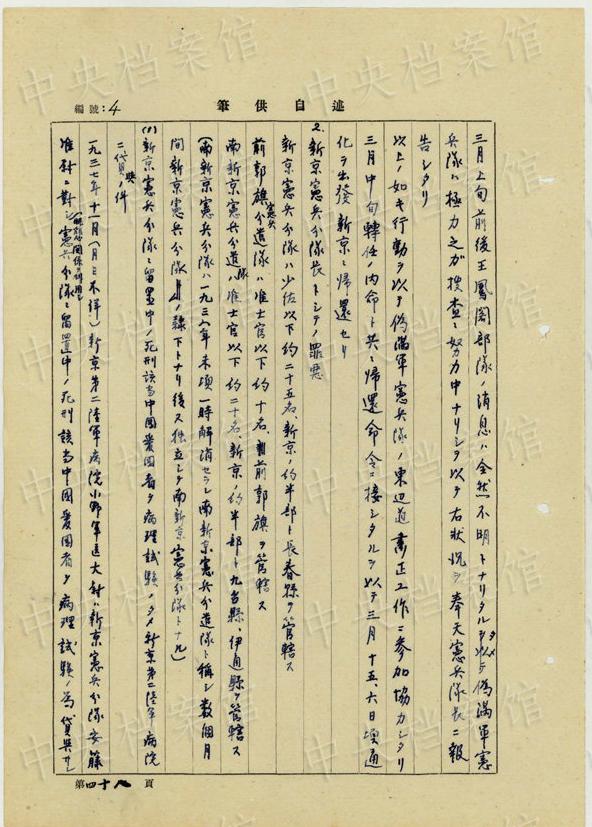 述自供筆
編號：4
三月上旬前後王鳳閣部隊ノ消息ハ全然不明トナリタルタメ偽満軍憲
兵隊ハ極力之ガ捜査ニ努力中ナリシヲ以テ右状況ヲ奉天憲兵隊長ニ報
告シタリ
以上ノ如キ行動ヲ以テ偽満軍憲兵隊ノ東辺道粛正工作ニ参加協力シタリ
三月中旬轉任ノ内命ト共ニ帰還命令ニ接シタルヲ以テ三月十五、六日頃通
化ヲ出發新京ニ帰還セリ
2. 新京憲兵分隊長トシテノ罪悪
新京憲兵分隊ハ少佐以下約二十五名、新京ノ約半部ト長春縣ヲ管轄ス
前郭旗憲兵分遣隊ハ准士官以下約十名、前郭旗ヲ管轄ス
南新京憲兵分遣隊ハ准士官以下約二十名、新京ノ約半部ト九台縣、伊通縣ヲ管轄ス
(南新京憲兵分隊ハ一九三六年末頃一時解消セラレ南新京憲兵分遣隊ト稱シ数個月
間新京憲兵分隊ノ隷下トナリ後又独立シテ南新京憲兵分隊トナル)
(1) 新京憲兵分隊ニ留置中ノ死刑該当中国愛国者ヲ病理試験ノタメ新京第二陸軍病院
ニ貸與ノ件
一九三七年十一月(月日不詳)新京第二陸軍病院小野軍医大尉ハ新京憲兵分隊安藤
准尉ニ対シ憲兵分隊ニ留置中ノ死刑該当中国愛国者ヲ病理試験ノ為貸與サレ
第四十八頁
中央档案馆